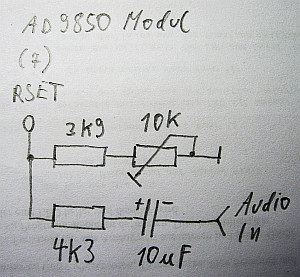 AD9850 Modul
(7)
RSET
3K9 10K
+ -
Audio
In
4K3 10uF